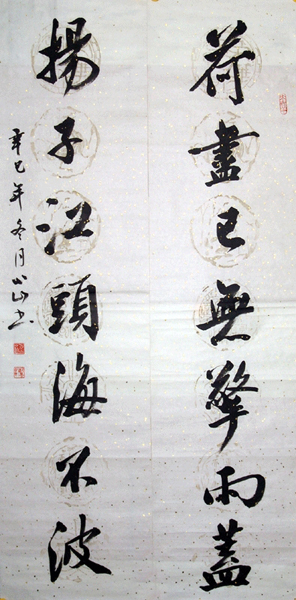 荷盡已無擎雨蓋
揚子江頭海不波
辛巳年冬月心山書